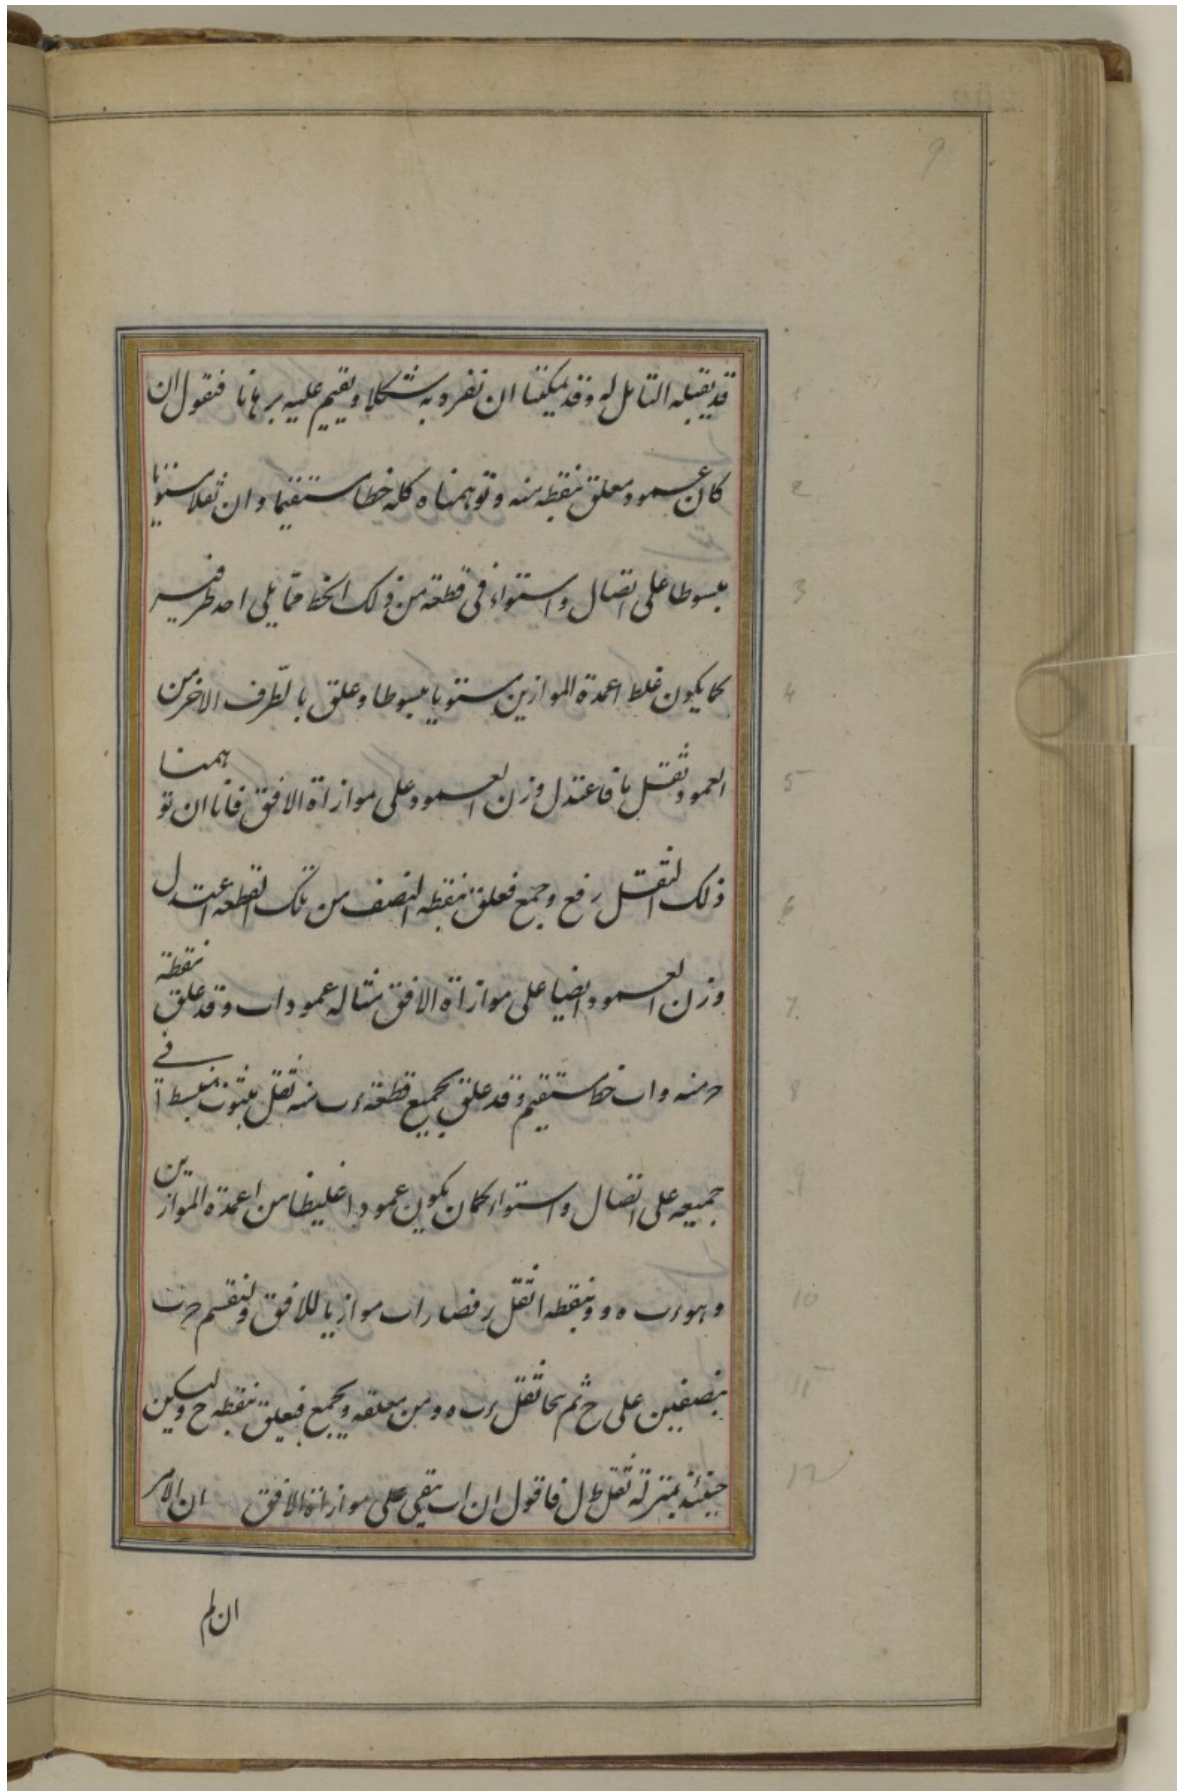 9
قد يقبله التامل له وقد يمكننا ان نفرد به شكلا ويقيم عليه برهانا فنقول ان
كان عمود معلق بنقطه منه وتوهمناه كله خطا مستقيما وان ثقلا مستويا
مبسوطا على اتصال واستواء فى قطعة من ذلك الخط مما يلى احد طرفيه
كما يكون غلط اعمدة الموازين مستويا مبسوطا وعلق بالطرف الاخر من
العمود ثقل با فاعتدل وزن العمود على موازاة الافق فانا ان توهمنا
ذلك الثقل رفع وجمع فعلق بنقطه النصف من تلك القطعه اعتدل
وزن العمود ايضا على موازاة الافق مثاله عمود اب وقد علق نقطة
حـ منه واب خط مستقيم وقد علق بجميع قطعة رب منه ثقل مبثوث منبسط فى
جميعه على اتصال واستواء كما ان يكون عمودا غليظا من اعمدة الموازين
وهو رب ه و وبنقطه ا ثقل ر فصار اب موازيا للافق ولنقسم حرب
بنصفين على ح ثم نحا ثقل رب ه و من معلقه ويجمع فيعلق بنقطه ح وليكن
حينئذ بمنزلة ثقل ط ل فاقول ان اب يبقى على موازاة الافق ان الامر
ان لم
1
2
3
4
5
6
7
8
9
10
11
12